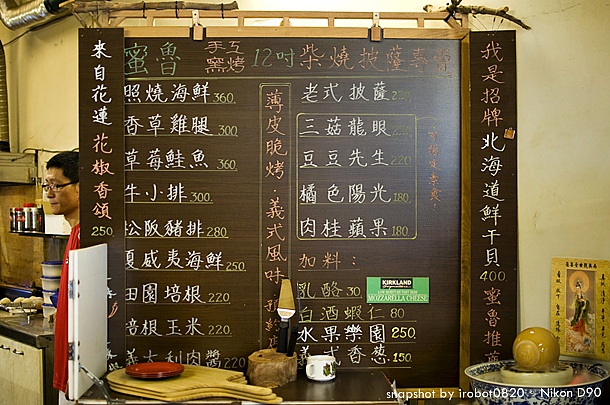 蜜魯 手工窯烤 12吋柴燒披薩專賣
來自花蓮 花椒香頌 250
照燒海鮮 360
香草雞腿 300
草莓鮭魚 360
牛小排 300
松阪豬排 280
夏威夷海鮮 250
田園培根 220
培根玉米 220
義大利肉醬 220
薄皮脆烤．義式風味
老式披薩 220
三菇龍眼 220
豆豆先生 220
橘色陽光 180
肉桂蘋果 180
加料：
乳酪 30
白酒蝦仁 80
水果樂園 250
義式香蔥 150
KIRKLAND
MOZZARELLA CHEESE
我是招牌 北海道鮮干貝 400 蜜魯推薦
snapshot by irobot0820 . Nikon D90